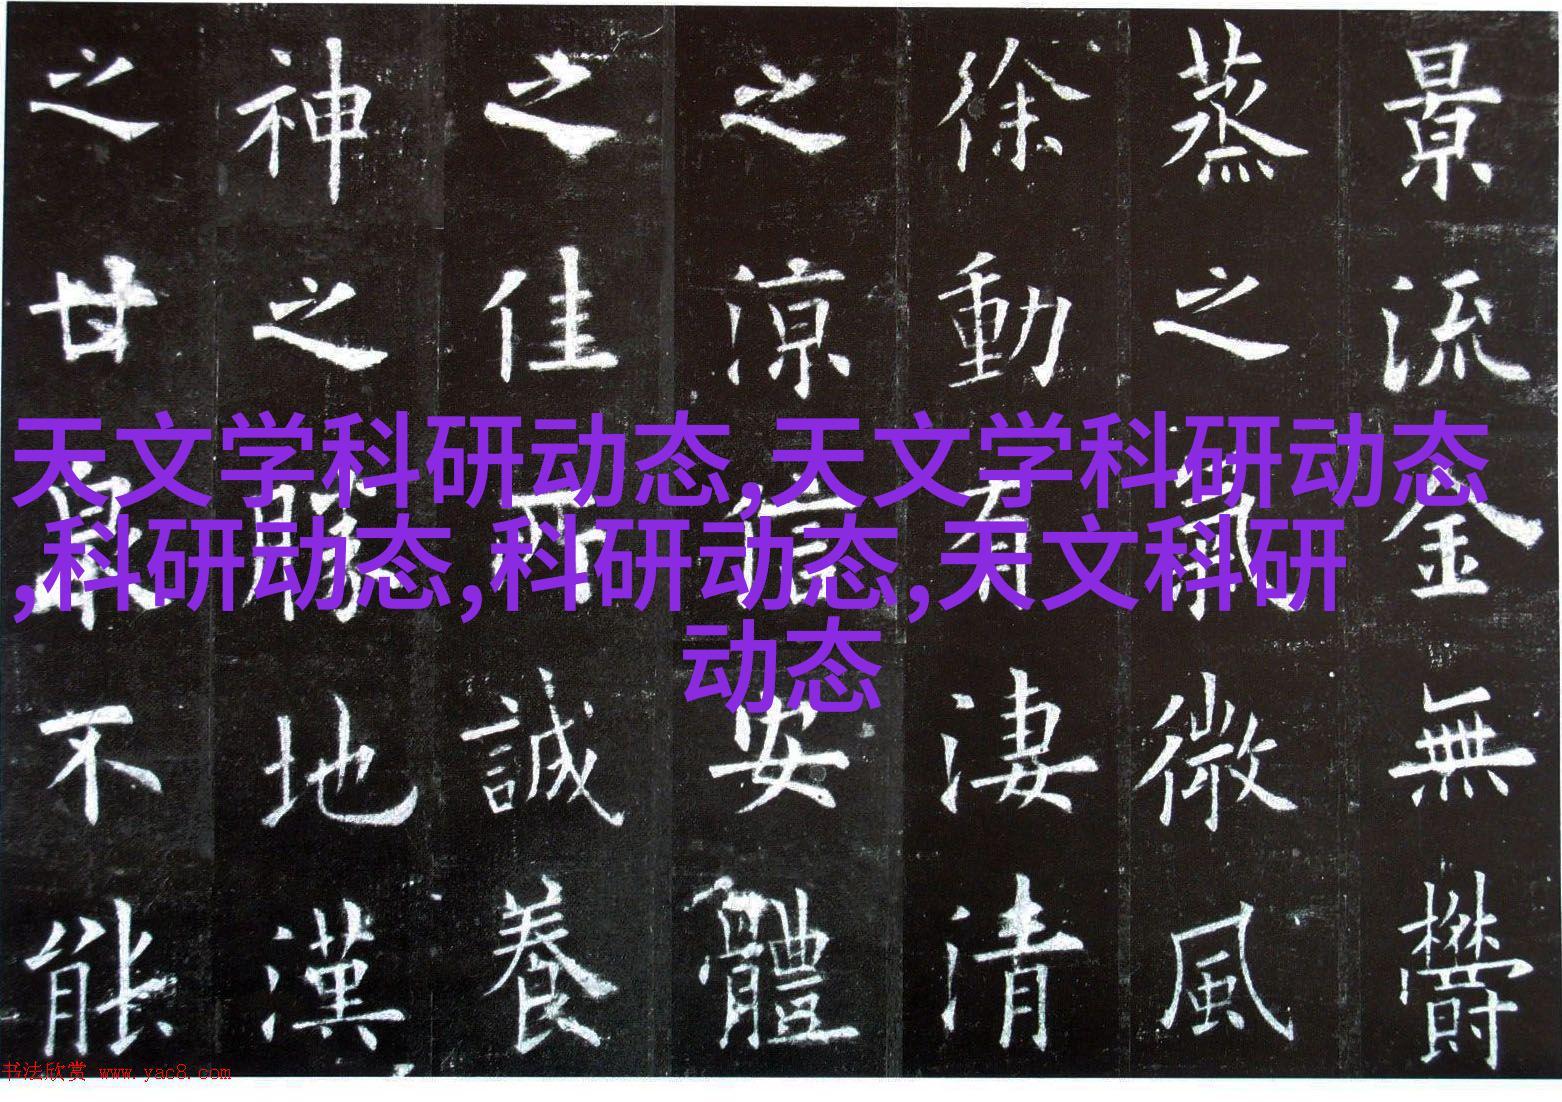 景流金無鬱
蒸之氣微風
徐動有淒清
之涼信安體
之佳所誠養
神之勝地漢
之甘泉不能
天文学科研动态,天文学科研动态
,科研动态,科研动态,天文科研
动态
书法欣赏 www.yac8.com